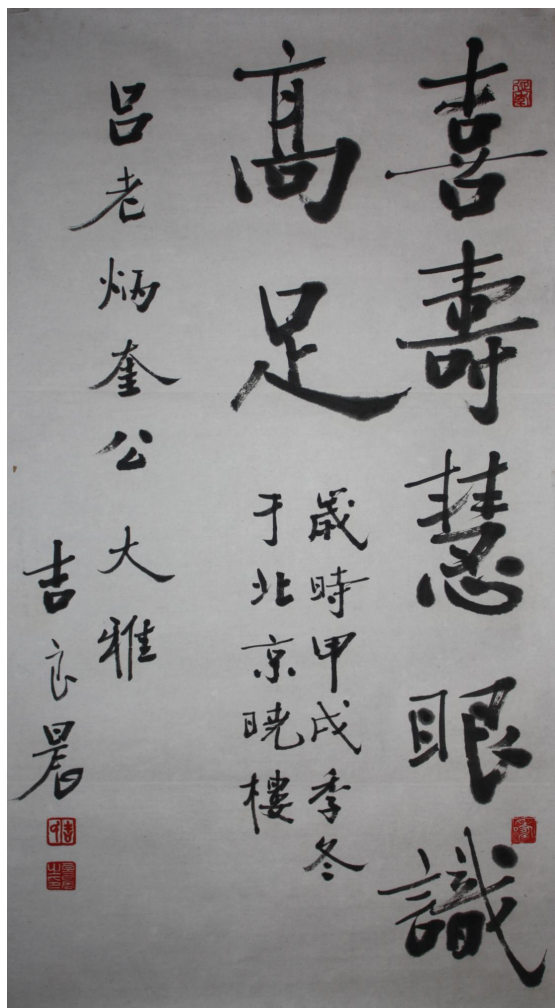 喜壽慧眼識
高足
歲時甲戌季冬
于北京曉樓
呂老炳奎公 大雅
吉良晨